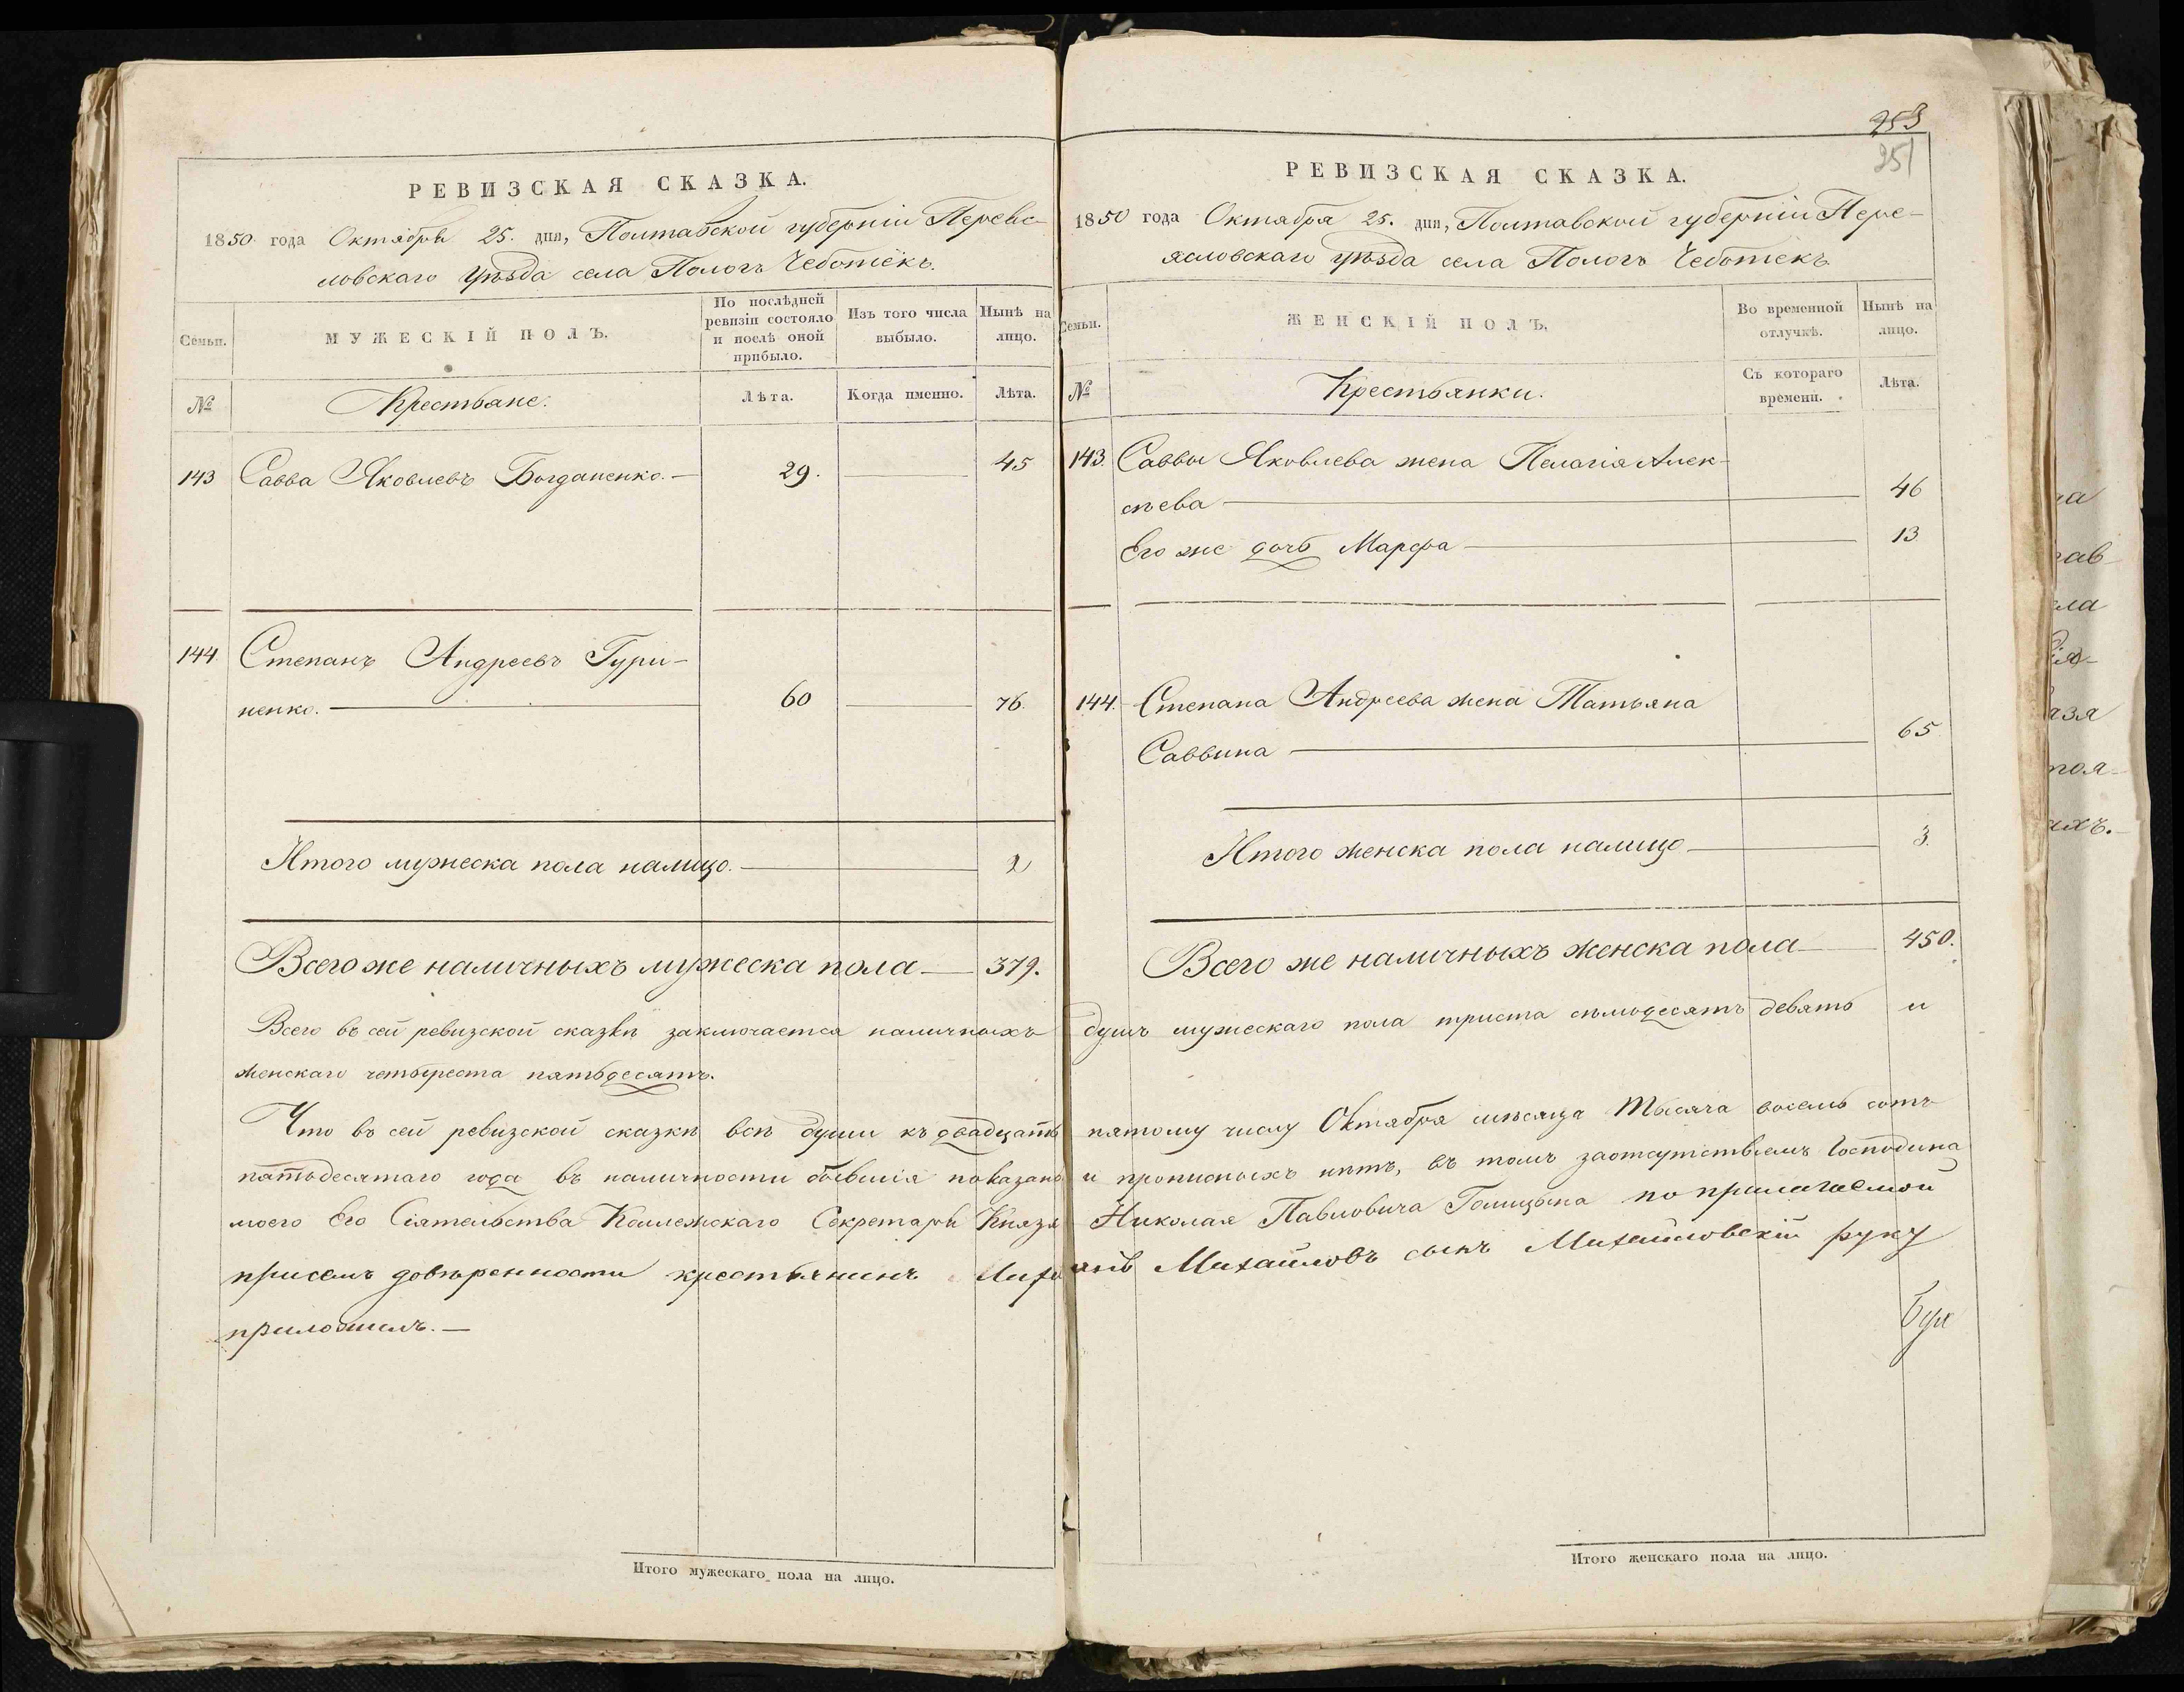 РЕВИЗСКАЯ СКАЗКА.
1850 года Октября 25. дня, Полтавской губерніи Переяс-
ловскаго уѣзда села Пологъ Чеботёкъ.
Семьи.
МУЖЕСКІЙ ПОЛЪ.
По послѣдней
ревизіи состояло
и послѣ оной
прибыло.
Изъ того числа
выбыло.
Нынѣ на
лицо.
№
Крестьяне.
Лѣта.
Когда именно.
Лѣта.
143 Савва Яковлевъ Богданенко. — 29. 45
144 Степанъ Андреевъ Гури-
ненко. 60 76.
Итого мужеска пола налицо. 2
Всего же наличныхъ мужеска пола — 379.
253
251
РЕВИЗСКАЯ СКАЗКА.
1850 года Октября 25. дня, Полтавской губерніи Пере-
ясловскаго уѣзда села Пологъ Чеботекъ.
Семьи.
ЖЕНСКІЙ ПОЛЪ.
Во временной
отлучкѣ.
Нынѣ на
лицо.
№
Крестьянки.
Съ котораго
времени.
Лѣта.
143. Саввы Яковлева жена Пелагія Алек-
сѣева 46
Его же дочь Марфа 13
144. Степана Андреева жена Татьяна
Саввина 65
Итого женска пола налицо 3.
Всего же наличныхъ женска пола 450.
Всего въ сей ревизской сказкѣ заключается наличныхъ душъ мужескаго пола триста сѣмодесятъ девять и
женскаго четыреста пятьдесятъ.
Что въ сей ревизской сказкѣ всѣ души къ двадцать пятому числу Октября мѣсяца тысяча восемь сотъ
пятьдесятаго года въ наличности бывшія показаны и прописныхъ нѣтъ, въ томъ заотсутствіемъ Господина
моего Его Сіятельства Коллежскаго Секретаря Князя Николая Павловича Голицына по прилагаемой
присемъ довѣренности крестьянинъ Михайловъ сынъ Михайловскій руку
приложилъ. —
Итого мужескаго пола на лицо.
Итого женскаго пола на лицо.